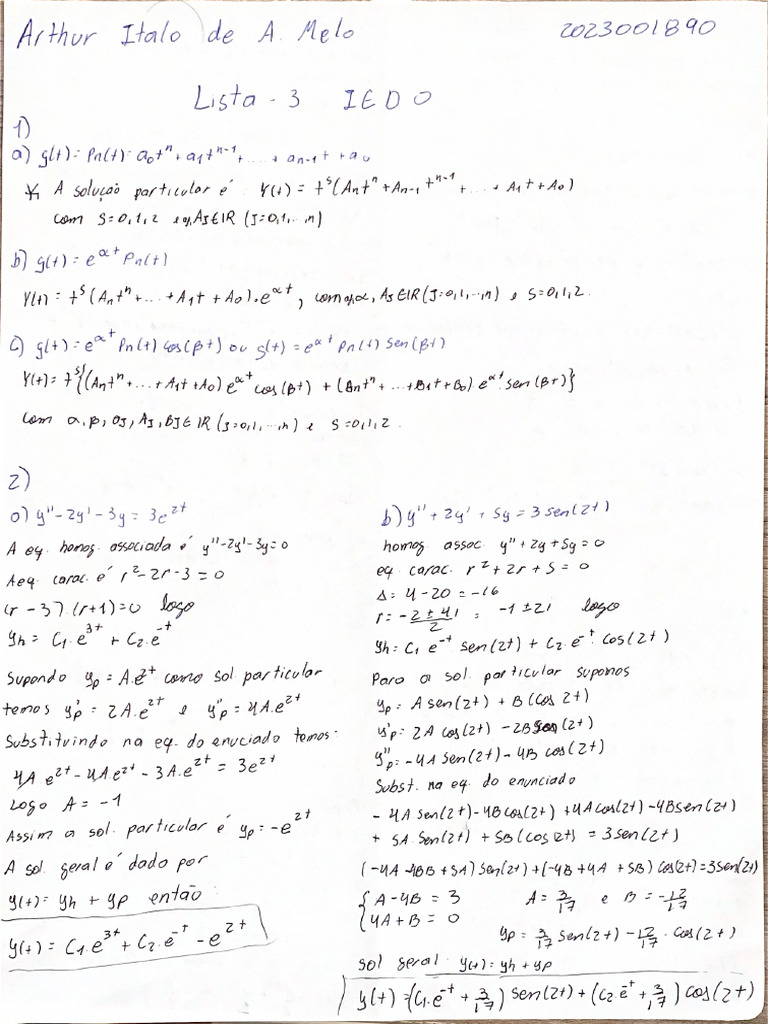 Arthur Italo de A. Melo 2023001890
Lista - 3 IEDO
1)
a) g(t) = Pn(t) = a₀tⁿ + a₁tⁿ⁻¹ + .... + aₙ₋₁t + a₀
* A solução particular é: Y(t) = tˢ(Aₙtⁿ + Aₙ₋₁tⁿ⁻¹ + ... + A₁t + A₀)
com S=0,1,2 e aⱼ,Aⱼ∈IR (J=0,1,...,n)
b) g(t) = e^αt Pn(t)
Y(t) = tˢ(Aₙtⁿ + ... + A₁t + A₀).e^αt, com aⱼ,α, Aⱼ∈IR (J=0,1,...,n) e S=0,1,2.
C) g(t) = e^αt Pn(t) cos(βt) ou g(t) = e^αt Pn(t) sen(βt)
Y(t) = tˢ{(Aₙtⁿ + ... + A₁t + A₀) e^αt cos(βt) + (Bₙtⁿ + ... + B₁t + B₀) e^αt sen(βt)}
com α, β, aⱼ, Aⱼ, Bⱼ ∈ IR (J=0,1,...,n) e S=0,1,2.
2)
a) y'' - 2y' - 3y = 3e^2t
A eq. homog. associada é y'' - 2y' - 3y = 0
A eq. carac. é r² - 2r - 3 = 0
(r - 3).(r + 1) = 0 logo
yh = C₁.e^3t + C₂.e^-t
Supondo yp = A.e^2t como sol. particular
temos y'p = 2A.e^2t e y''p = 4A.e^2t
Substituindo na eq. do enuciado temos:
4A e^2t - 4A.e^2t - 3A.e^2t = 3e^2t
Logo A = -1
Assim a sol. particular é yp = -e^2t
A sol. geral é dado por
y(t) = yh + yp então:
y(t) = C₁.e^3t + C₂.e^-t - e^2t
b) y'' + 2y' + 5y = 3 sen(2t)
homog. assoc. y'' + 2y + 5y = 0
eq. carac. r² + 2r + 5 = 0
Δ = 4 - 20 = -16
r = (-2 ± 4i)/2 = -1 ± 2i logo
yh = C₁ e^-t sen(2t) + C₂.e^-t cos(2t)
Para a sol. particular supomos
yp = A sen(2t) + B(cos 2t)
y'p = 2A cos(2t) - 2B sen(2t)
y''p = -4A sen(2t) - 4B cos(2t)
Subst. na eq. do enunciado
- 4A sen(2t) - 4B cos(2t) + 4A cos(2t) - 4B sen(2t)
+ 5A. Sen(2t) + 5B (cos 2t) = 3 sen(2t)
(-4A - 4B + 5A) sen(2t) + (-4B + 4A + 5B) cos(2t) = 3 sen(2t)
{ A - 4B = 3 A = 3/17 e B = -12/17
{ 4A + B = 0
yp = 3/17 sen(2t) - 12/17 . cos(2t)
sol geral: y(t) = yh + yp
y(t) = (C₁.e^-t + 3/17) sen(2t) + (C₂.e^-t + 3/17) cos(2t)